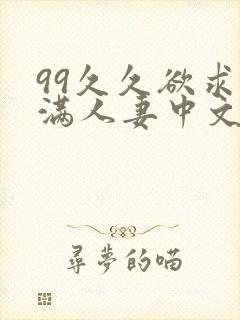 99久久欲求
满人妻中文
尋夢的喵